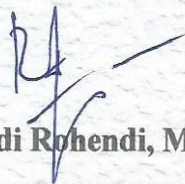 di Rohendi, M